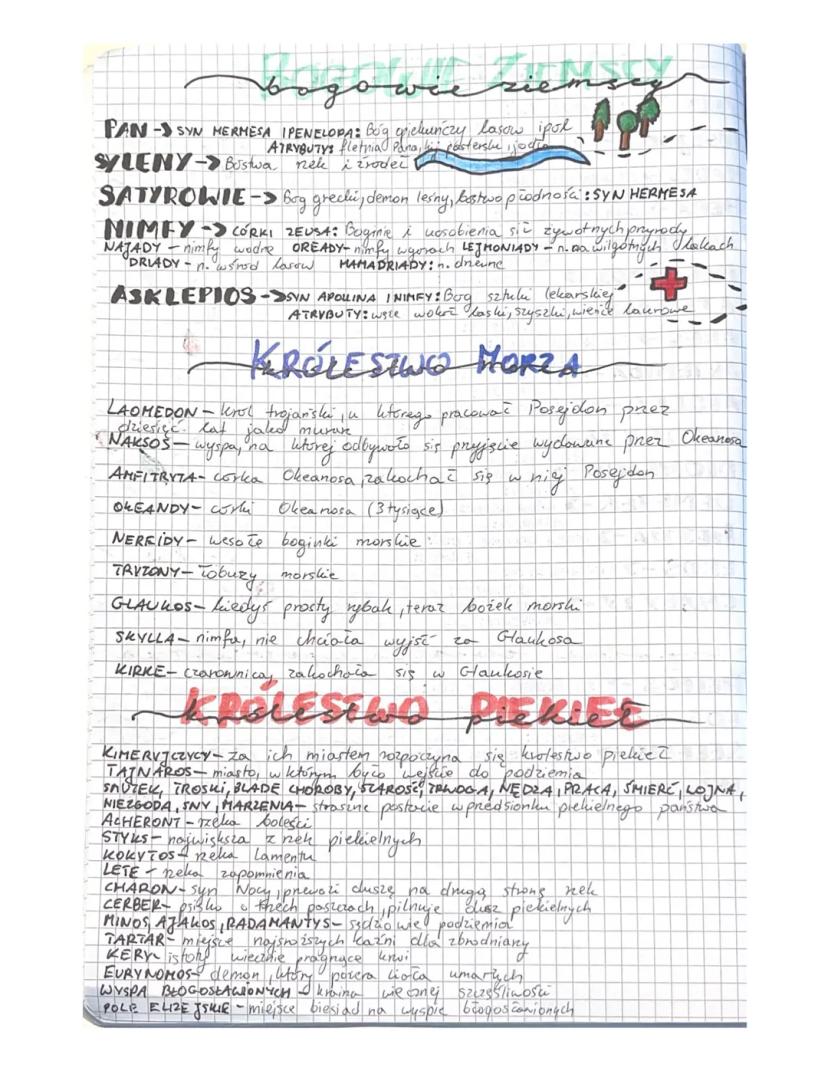 BOGOWIE ZIEMSCY
bogowie ziemscy
PAN -> SYN HERMESA I PENELOPA: Bóg opiekuńczy lasow i pól
ATRYBUTYS fletnia Pana, kij pasterski i jodła
SYLENY -> Bóstwa rzek i źrodeł
SATYROWIE -> Bog grecki, demon leśny, bóstwo płodności: SYN HERMESA
NIMFY -> CÓRKI ZEUSA: Boginie i uosobienia sił żywotnych przyrody
NAJADY - nimfy wodne OREADY - nimfy w gorach LEJMONIADY - n. na wilgotnych łąkach
DRIADY - n. wśrod lasow HAMADRIADY: n. drzewne
ASKLEPIOS -> SYN APOLLINA I NIMFY: Bog sztuki lekarskiej
ATRYBUTY: węże wokoł laski, szyszki, wieńce laurowe
KRÓLESTWO MORZA
królestwo morza
LAOMEDON - krol trojański, u ktorego pracował Posejdon przez
dziesięć lat jako murarz
NAKSOS - wyspa, na ktorej odbywoło się przyjęcie wydowane przez Okeanosa
AMFITRYTA - corka Okeanosa, zakochał się w niej Posejdon
OKEANDY - corki Okeanosa (3 tysiące)
NEREIDY - wesołe boginki morskie
TRYTONY - łobuzy morskie
GLAUKOS - kiedyś prosty rybak, teraz bożek morski
SKYLLA - nimfa, nie chciała wyjść za Glaukosa
KIRKE - czarownica, zakochała się w Glaukosie
KRÓLESTWO PIEKIEŁ
królestwo piekieł
KIMERYJCZYCY - za ich miastem rozpoczyna się krolestwo piekieł
TAJNAROS - miasto, w którym było wejście do podziemia
SMUTEK, TROSKI, BLADE CHOROBY, STAROŚĆ, TRWOGA, NĘDZA, PRACA, ŚMIERĆ, WOJNA,
NIEZGODA, SNY, MARZENIA - straszne postacie w przedsionku piekielnego państwa
ACHERONT - rzeka boleści
STYKS - największa z rzek piekielnych
KOKYTOS - rzeka lamentu
LETE - rzeka zapomnienia
CHARON - syn Nocy, przewozi duszę na drugą stronę rzek
CERBER - psisko o trzech paszczach, pilnuje dusz piekielnych
MINOS, AJAKOS, RADAMANTYS - sędziowie podziemia
TARTAR - miejsce najsroższych kaźni dla zbrodniarzy
KERY istoty wiecznie pragnące krwi
EURYNOMOS - demon, ktory pożera ciała umarłych
WYSPA BŁOGOSŁAWIONYCH - kraina wiecznej szczęśliwości
POLE ELIZEJSKIE - miejsce biesiad na wyspie błogosłanionych